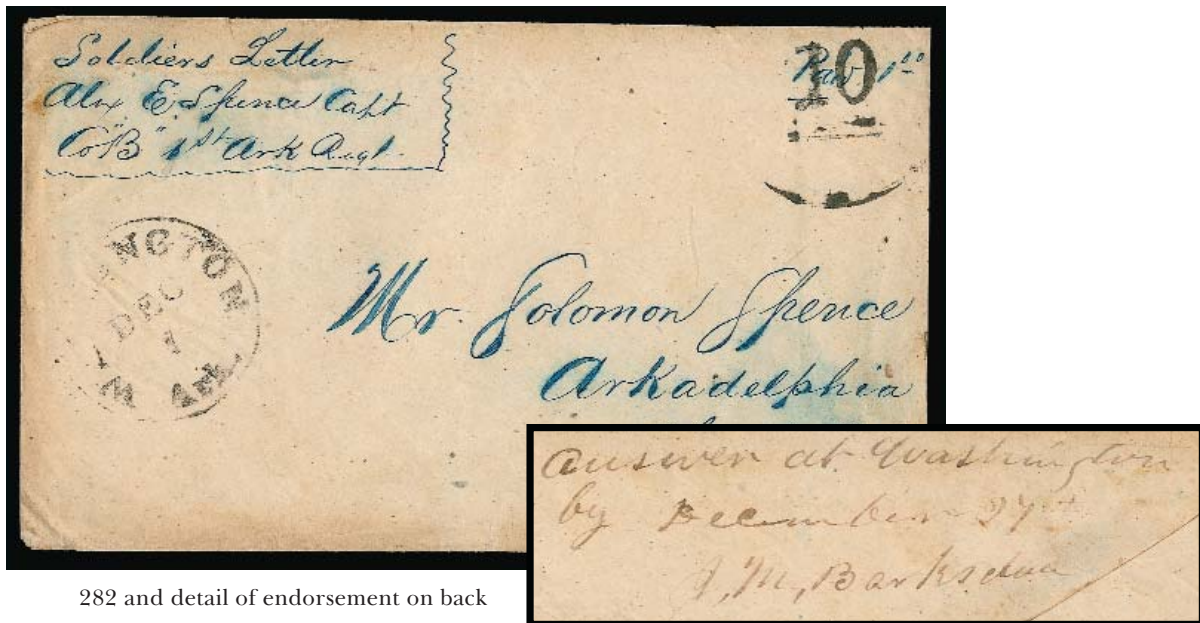 Soldiers Letter
Alex E. Spence Capt
Co "B" 1st Ark Regt.
10
INGTON
DEC
1
W Ark.
Mr. Solomon Spence
Arkadelphia
answer at Washington
by December 27
J, M, Barksdale
282 and detail of endorsement on back